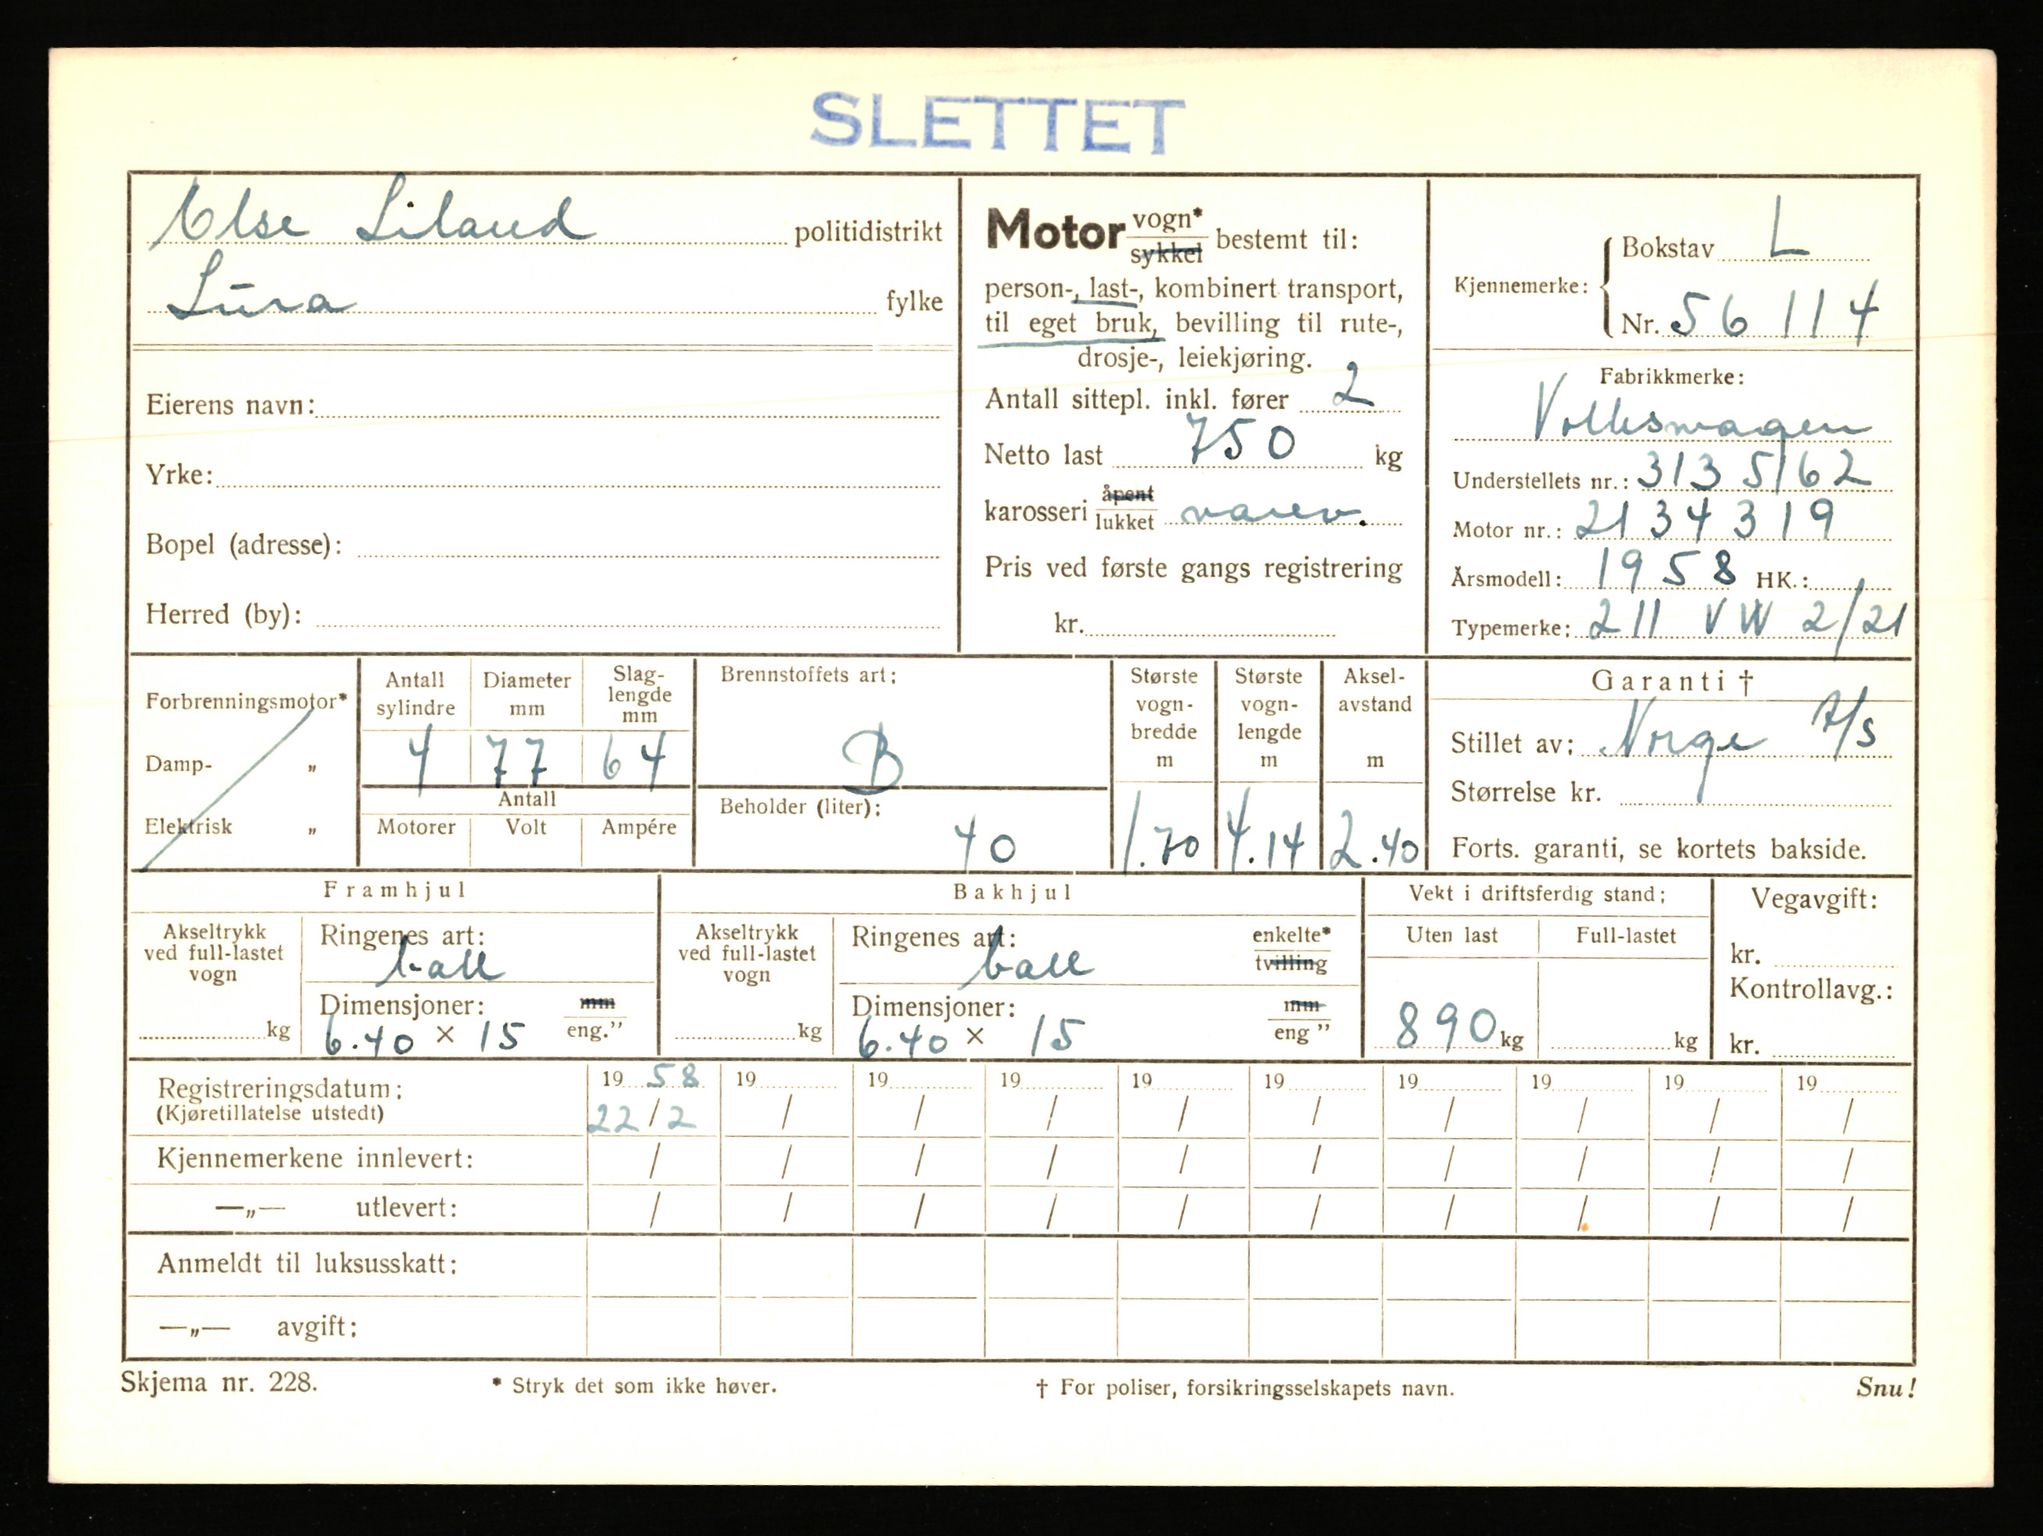 SLETTET
Else Liland politidistrikt
Lura fylke
Eierens navn:
Yrke:
Bopel (adresse):
Herred (by):
Motor vogn* sykkel bestemt til:
person-, last-, kombinert transport,
til eget bruk, bevilling til rute-,
drosje-, leiekjøring.
Antall sittepl. inkl. fører 2
Netto last 750 kg
karosseri åpent lukket varev.
Pris ved første gangs registrering
kr.
Kjennemerke: Bokstav L
Nr. 56114
Fabrikkmerke:
Volkswagen
Understellets nr.: 3135162
Motor nr.: 2134319
Årsmodell: 1958 HK.:
Typemerke: 211 VW 2/21
Forbrenningsmotor*
Damp- „
Elektrisk „
Antall sylindre 4
Diameter mm 77
Slag-lengde mm 64
Antall
Motorer Volt Ampére
Brennstoffets art: B
Beholder (liter): 40
Største vogn-bredde m 1.70
Største vogn-lengde m 4.14
Aksel-avstand m 2.40
Garanti †
Stillet av: Norge A/S
Størrelse kr.
Forts. garanti, se kortets bakside.
Framhjul
Akseltrykk ved full-lastet vogn
kg
Ringenes art: ball
Dimensjoner: mm
6.40 × 15 eng.”
Bakhjul
Akseltrykk ved full-lastet vogn
kg
Ringenes art: ball enkelte* tvilling
Dimensjoner: mm
6.40 × 15 eng ”
Vekt i driftsferdig stand:
Uten last Full-lastet
890 kg kg
Vegavgift:
kr.
Kontrollavg.:
kr.
Registreringsdatum: 19 58 19 19 19 19 19 19 19 19 19
(Kjøretillatelse utstedt) 22/2 / / / / / / / / /
Kjennemerkene innlevert: / / / / / / / / / /
—„— utlevert: / / / / / / / / / /
Anmeldt til luksusskatt:
—„— avgift:
Skjema nr. 228. * Stryk det som ikke høver. † For poliser, forsikringsselskapets navn. Snu!